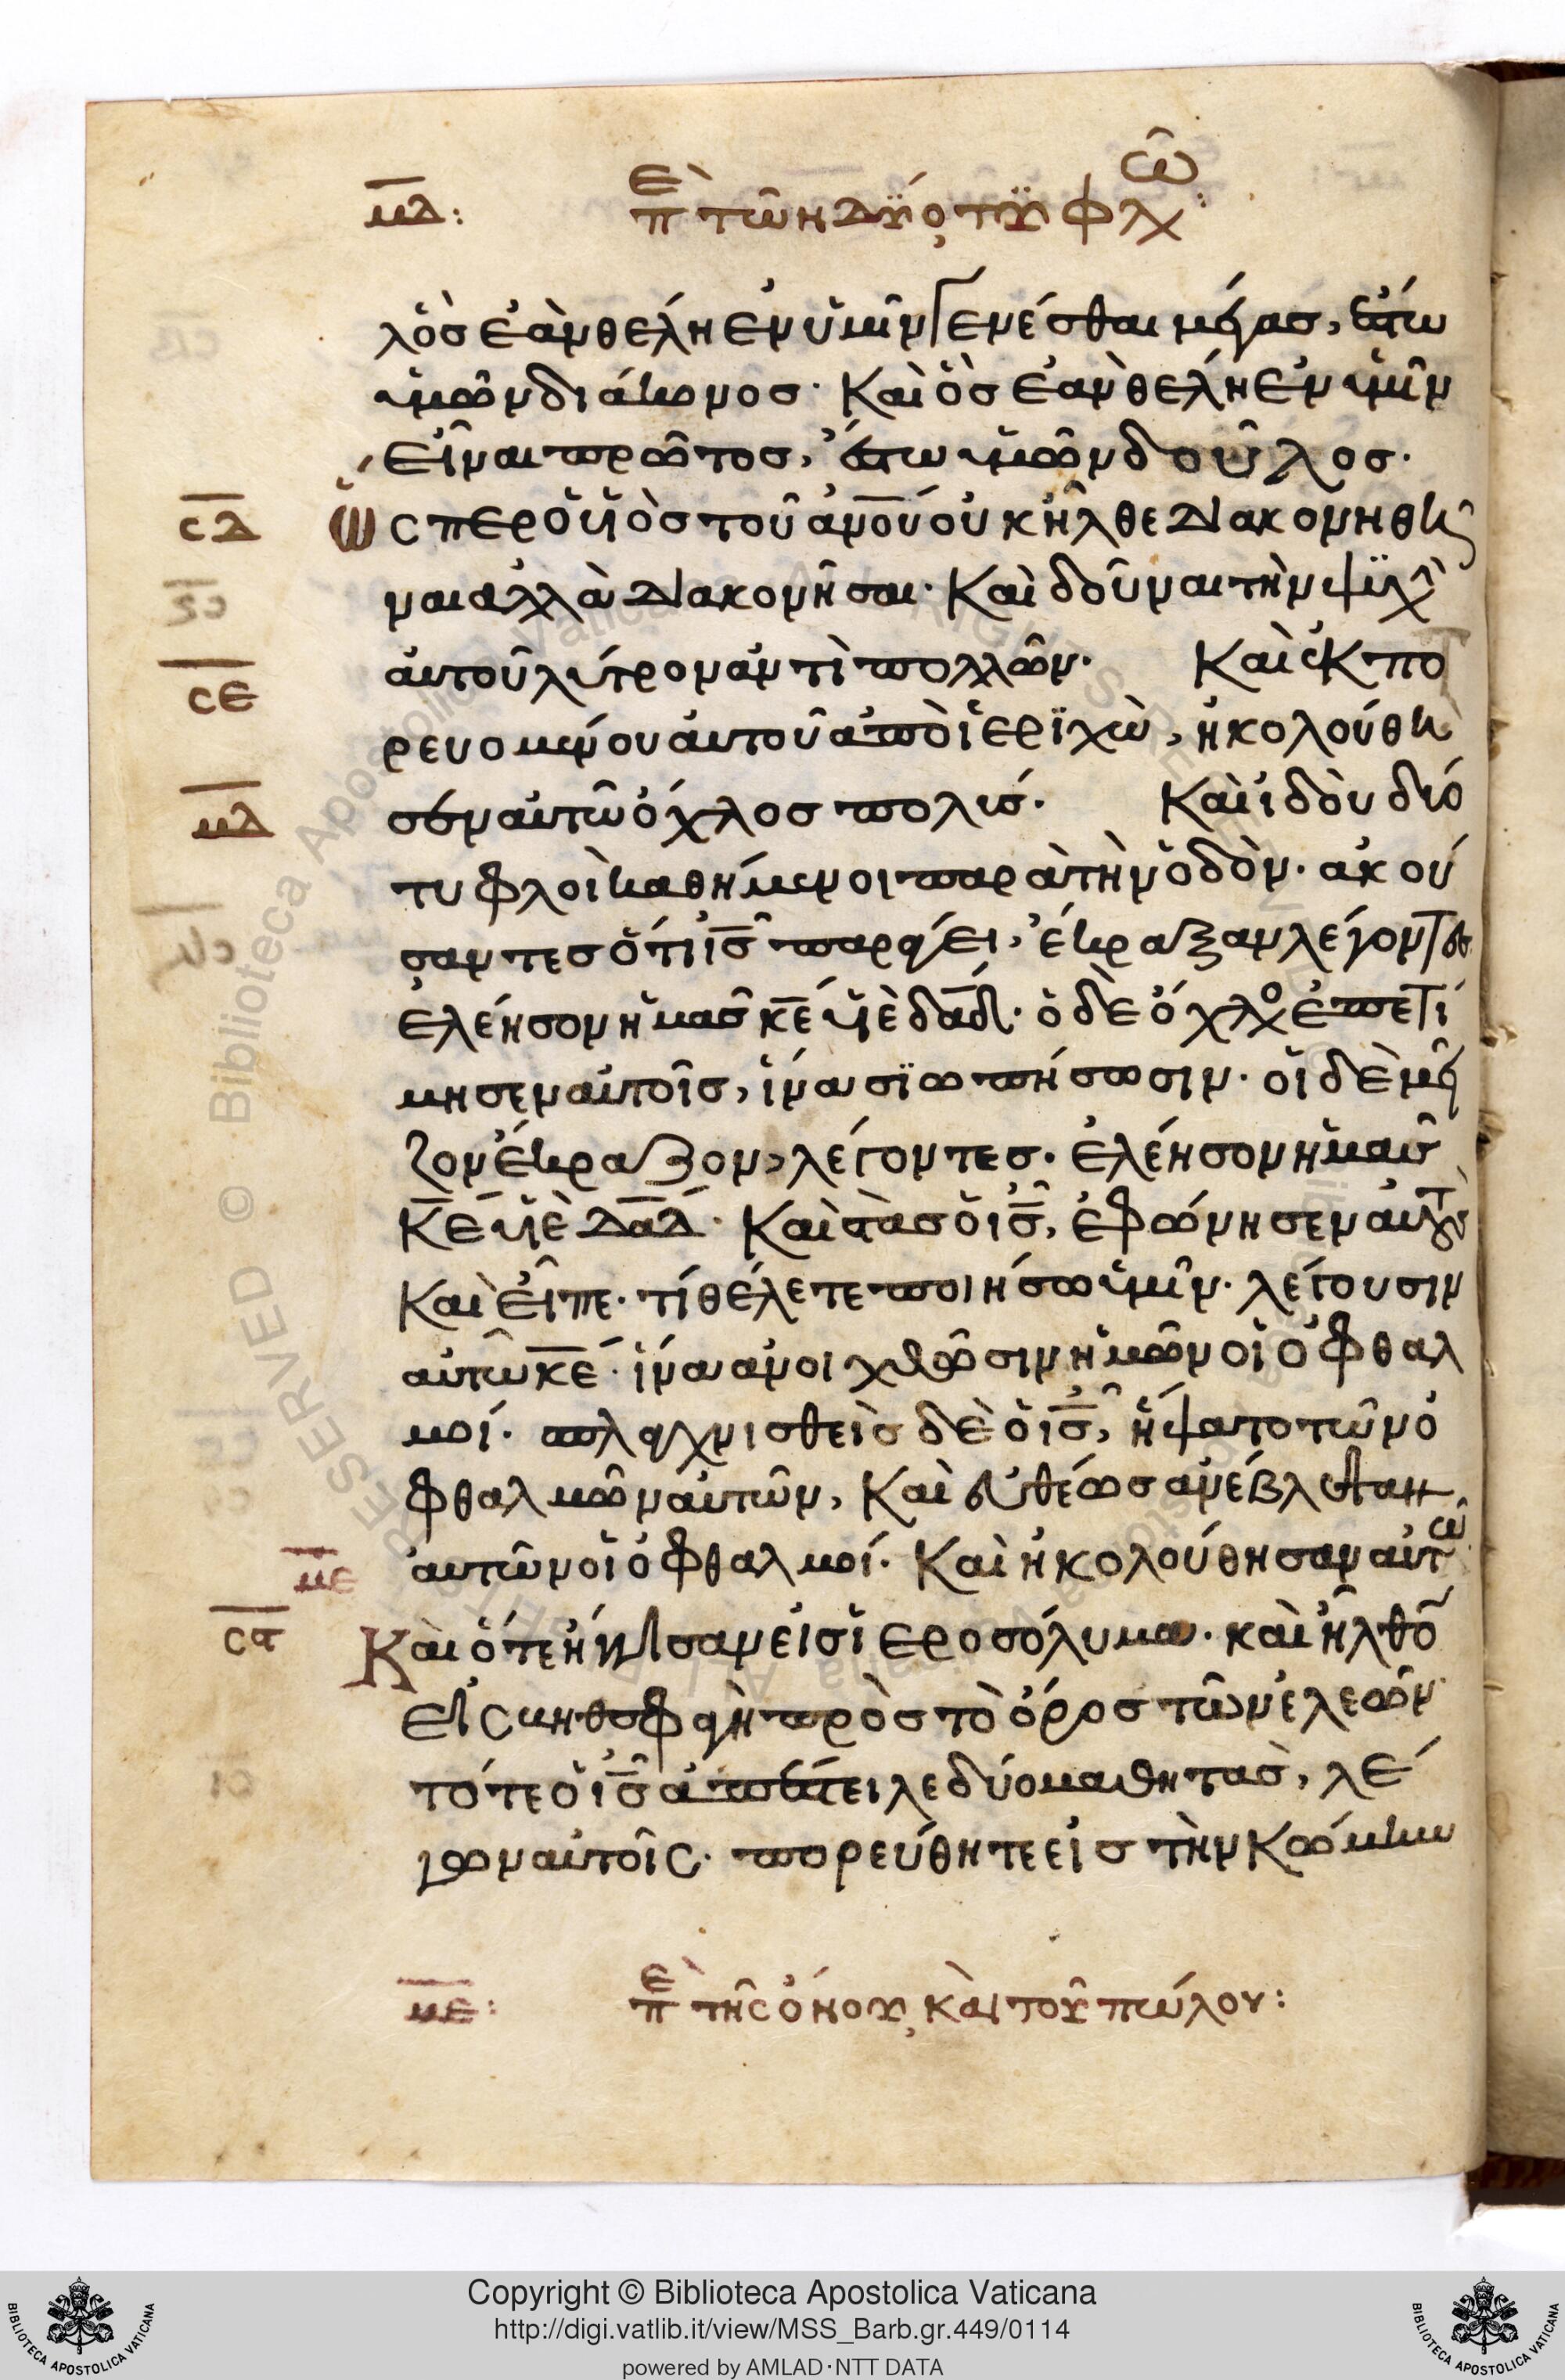 μδ: ἐπὶ τῶν δύο τυφλῶ:
λὸσ ἐὰν θέλη ἐν ὑμῖν γενέσθαι μέγασ, ἔστω
ὑμῶν διάκονοσ· Καὶ ὃσ ἐὰν θέλη ἐν ὑμῖν
εἶναι πρῶτοσ, ἔστω ὑμῶν δοῦλοσ.
σδ Ὥσπερ ὁ υἱὸσ τοῦ ἀνου οὐκ ἦλθε διακονηθῆ
ναι ἀλλὰ διακονῆσαι· Καὶ δοῦναι τὴν ψυχὴ
αὐτοῦ λύτρον ἀντὶ πολλῶν· Καὶ ἐκπο
σε
ρευομένου αὐτοῦ ἀπὸ ἱεριχὼ, ἠκολούθη
σεν αὐτῶ ὄχλοσ πολύσ· Καὶ ἰδοὺ δύο
μδ
τυφλοὶ καθήμενοι παρὰ τὴν ὁδὸν· ἀκού
σαντεσ ὅτι ισ παράγει, ἔκραξαν λέγοντεσ
ἐλέησον ἡμᾶσ κε υἱὲ δαδ· ὁ δὲ ὄχλο ἐπετί
μησεν αὐτοῖσ, ἵνα σϊωπήσωσιν· οἱ δὲ μεῖ
ζον ἔκραζον, λέγοντεσ· ἐλέησον ἡμᾶσ
κε υἱὲ δαδ· Καὶ στὰσ ὁ ισ, ἐφώνησεν αὐτοὺσ
Καὶ εἶπε· τί θέλετε ποιήσω ὑμῖν· λέγουσιν
αὐτῶ κε· ἵνα ἀνοιχθῶσιν ἡμῶν οἱ ὀφθαλ
μοί· σπλαγχνισθεὶσ δὲ ὁ ισ, ἥψατο τῶν ὀ
φθαλμῶν αὐτῶν, Καὶ εὐθέωσ ἀνέβλεψαν
με αὐτῶν οἱ ὀφθαλμοί· Καὶ ἠκολούθησαν αὐτῶ
σϛ Καὶ ὅτε ἤγγισαν εἰσ ἱεροσόλυμα· καὶ ἦλθο
εἰσ βηθσφαγὴ πρὸσ τὸ ὄροσ τῶν ἐλεῶν
τότε ὁ ισ ἀπέστειλε δύο μαθητὰσ, λέ
γων αὐτοῖσ· πορεύθητε εἰσ τὴν κώμην
με: ἐπὶ τῆς ὄνου, καὶ τοῦ πώλου:
Copyright © Biblioteca Apostolica Vaticana
http://digi.vatlib.it/view/MSS_Barb.gr.449/0114
powered by AMLAD·NTT DATA
BIBLIOTECA APOSTOLICA VATICANA
BIBLIOTECA APOSTOLICA VATICANA